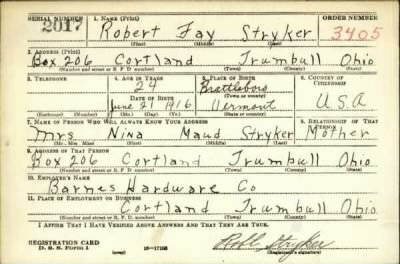 SERIAL NUMBER 1. NAME (Print) ORDER NUMBER
2017 Robert Fay Stryker 3405
(First) (Middle) (Last)
2. ADDRESS (Print)
Box 206 Cortland Trumbull Ohio
(Number and street or R. F. D. number) (Town) (County) (State)
3. TELEPHONE 4. AGE IN YEARS 5. PLACE OF BIRTH 6. COUNTRY OF CITIZENSHIP
24 Brattleboro
DATE OF BIRTH (Town or county)
June 21 1916 Vermont U.S.A
(Exchange) (Number) (Mo.) (Day) (Yr.) (State or country)
7. NAME OF PERSON WHO WILL ALWAYS KNOW YOUR ADDRESS 8. RELATIONSHIP OF THAT PERSON
Mrs Nina Maud Stryker Mother
(Mr., Mrs., Miss) (First) (Middle) (Last)
9. ADDRESS OF THAT PERSON
Box 206 Cortland Trumbull Ohio
(Number and street or R. F. D. number) (Town) (County) (State)
10. EMPLOYER'S NAME
Barnes Hardware Co
11. PLACE OF EMPLOYMENT OR BUSINESS
Cortland Trumbull Ohio
(Number and street or R. F. D. number) (Town) (County) (State)
I AFFIRM THAT I HAVE VERIFIED ABOVE ANSWERS AND THAT THEY ARE TRUE.
REGISTRATION CARD
D. S. S. Form 1 (over) 16-17105 Robt Stryker
(Registrant's signature)